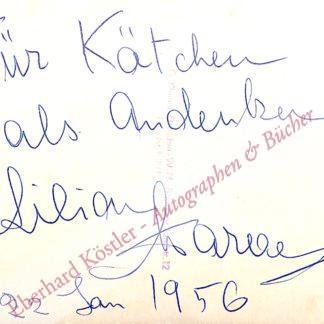 für Kätchen
als Andenken
Lilian Harvey
22 Jan 1956
Eberhard Köstler - Autographen & Bücher